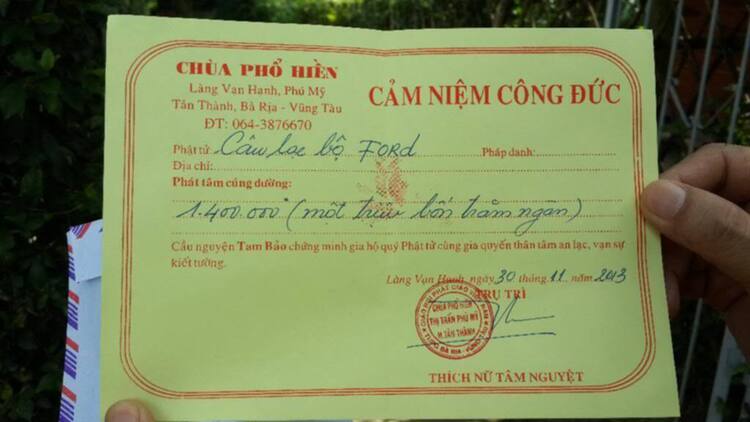 CHÙA PHỔ HIỀN
Làng Vạn Hạnh, Phú Mỹ
Tân Thành, Bà Rịa - Vũng Tàu
ĐT: 064-3876670
CẢM NIỆM CÔNG ĐỨC
Phật tử: Câu lạc bộ FORD Pháp danh:
Địa chỉ:
Phát tâm cúng dường:
1.400.000đ (một triệu bốn trăm ngàn)
Cầu nguyện Tam Bảo chứng minh gia hộ quý Phật tử cùng gia quyến thân tâm an lạc, vạn sự
kiết tường.
Làng Vạn Hạnh, ngày 30 tháng 11 năm 2013
TRỤ TRÌ
CHÙA PHỔ HIỀN
THỊ TRẤN PHÚ MỸ
H. TÂN THÀNH
THÍCH NỮ TÂM NGUYỆT